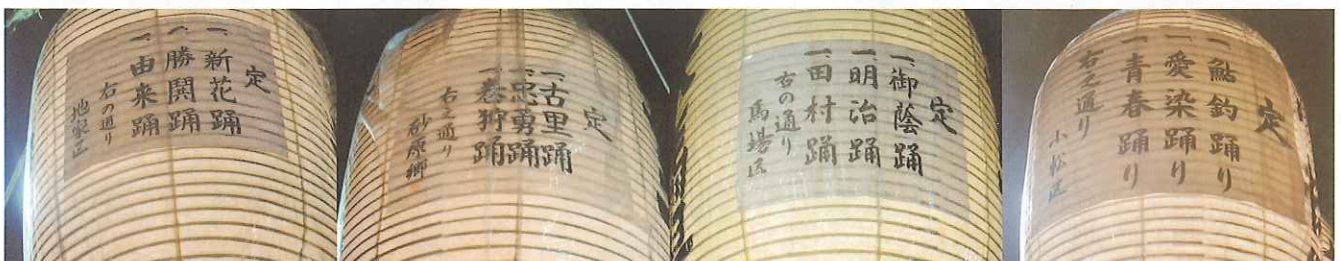 定
一、新花踊
一、勝鬨踊
一、由来踊
右の通り
地家区
定
一、古里踊
一、忠勇踊
一、巻狩踊
右之通り
砂原郷
定
一、御蔭踊
一、明治踊
一、田村踊
右の通り
馬場区
定
一、鮎釣踊り
一、愛染踊り
一、青春踊り
右之通り
小松区